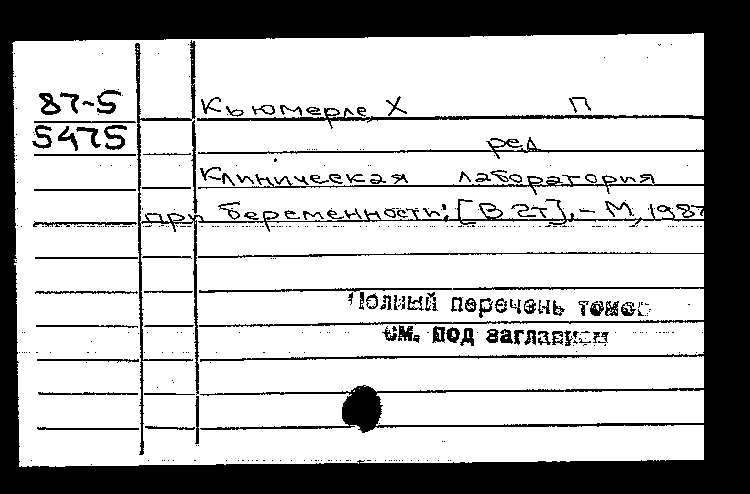 87-5 Кьюмерле, Х П
5475 ред
Клиническая лаборатория
при беременности: [В 2т], - М, 1987
Полный перечень томов
см. под заглавием